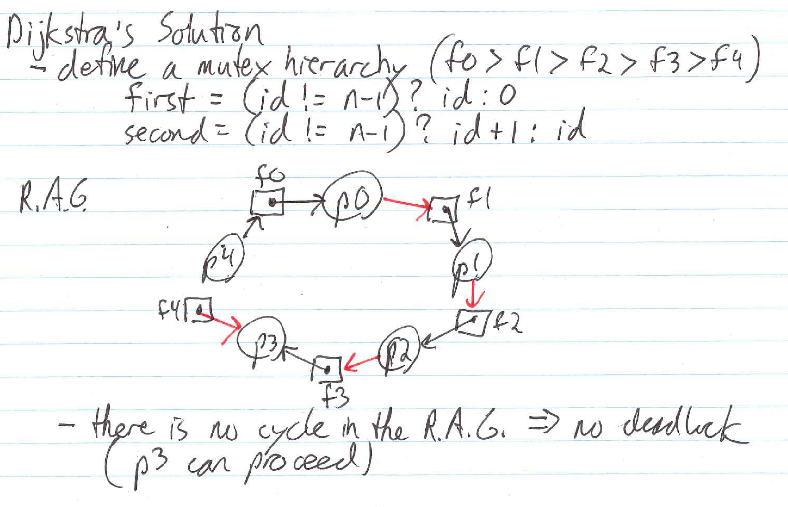 Dijkstra's Solution
- define a mutex hierarchy (f0 > f1 > f2 > f3 > f4)
first = (id != n-1) ? id : 0
second = (id != n-1) ? id+1 : id
R.A.G.
f0
p0
f1
p4
p1
f4
f2
p3
p2
f3
- there is no cycle in the R.A.G. ⇒ no deadlock
(p3 can proceed)